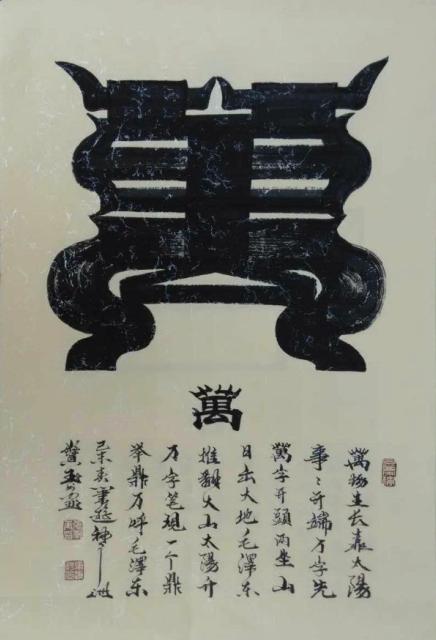 萬
萬
萬物生长靠太陽
事〻开端万字先
萬字开頭两坐山
日出大地毛澤东
推翻大山太陽升
万字笔现一个鼎
举鼎万呼毛澤东
己未書